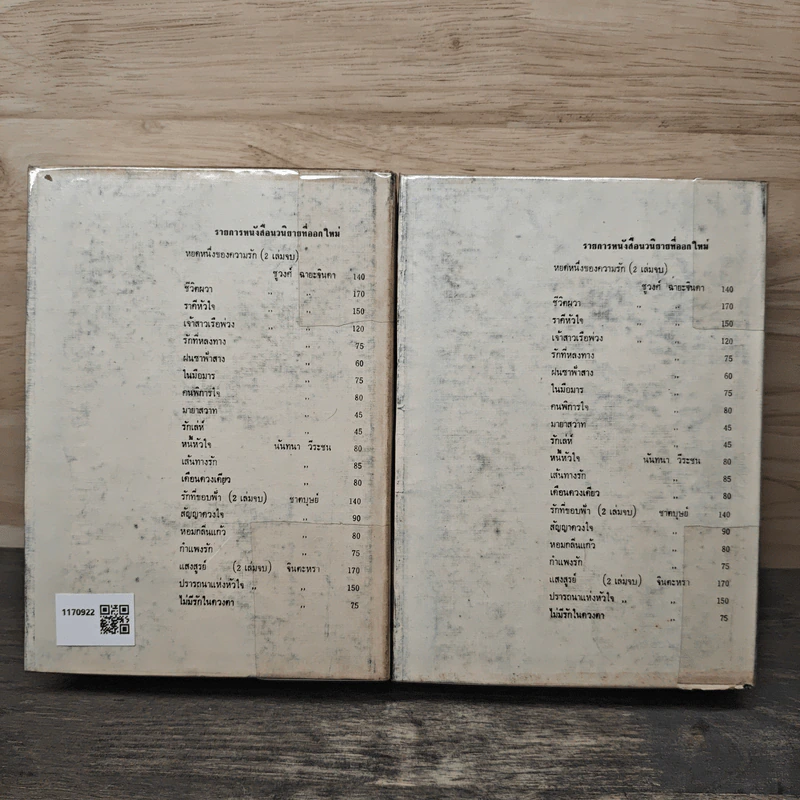 รายการหนังสือนวนิยายที่ออกใหม่
หยดหนึ่งของความรัก (2 เล่มจบ)
ชูวงศ์ ฉายะจินดา 140
ชีวิตผวา ,, ,, 170
ราคีหัวใจ ,, ,, 150
เจ้าสาวเรือพ่วง ,, ,, 120
รักที่หลงทาง ,, 75
ฝนซาฟ้าสาง ,, 60
ในมือมาร ,, 75
คนพิการใจ ,, 80
มายาสวาท ,, 45
รักเล่ห์ ,, 45
หนี้หัวใจ นันทนา วีระชน 80
เส้นทางรัก ,, 85
เดือนดวงเดียว ,, 80
รักที่ขอบฟ้า (2 เล่มจบ) ชาตบุษย์ 140
สัญญาดวงใจ ,, 90
หอมกลิ่นแก้ว ,, 80
กำแพงรัก ,, 75
แสงสูรย์ (2 เล่มจบ) จินตะหรา 170
ปรารถนาแห่งหัวใจ ,, ,, 150
ไม่มีรักในดวงตา ,, 75
1170922
รายการหนังสือนวนิยายที่ออกใหม่
หยดหนึ่งของความรัก (2 เล่มจบ)
ชูวงศ์ ฉายะจินดา 140
ชีวิตผวา ,, ,, 170
ราคีหัวใจ ,, ,, 150
เจ้าสาวเรือพ่วง ,, ,, 120
รักที่หลงทาง ,, 75
ฝนซาฟ้าสาง ,, 60
ในมือมาร ,, 75
คนพิการใจ ,, 80
มายาสวาท ,, 45
รักเล่ห์ ,, 45
หนี้หัวใจ นันทนา วีระชน 80
เส้นทางรัก ,, 85
เดือนดวงเดียว ,, 80
รักที่ขอบฟ้า (2 เล่มจบ) ชาตบุษย์ 140
สัญญาดวงใจ ,, 90
หอมกลิ่นแก้ว ,, 80
กำแพงรัก ,, 75
แสงสูรย์ (2 เล่มจบ) จินตะหรา 170
ปรารถนาแห่งหัวใจ ,, ,, 150
ไม่มีรักในดวงตา ,, 75